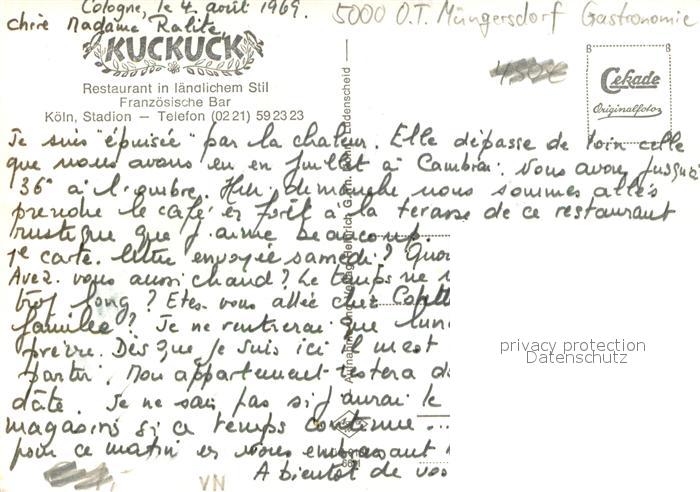 Cologne, le 4 août 1969.
5000 O.T. Müngersdorf Gastronomie
Chère Madame Ralite,
KUCKUCK
Restaurant in ländlichem Stil
Französische Bar
Köln, Stadion — Telefon (02 21) 59 23 23
Cekade
Originalfoto
Je suis "épuisée" par la chaleur. Elle dépasse de loin celle
que nous avons eu en juillet à Cambrai. Nous avons jusqu'à
36° à l'ombre. Hier dimanche nous sommes allés
prendre le café en forêt à la terasse de ce restaurant
rustique que j'aime beaucoup.
1e carte. lettre envoyée samedi?
Avez-vous aussi chaud? Le temps ne
trop long? Etes-vous allée chez
famille? Je ne rentrerai que
Dès que je suis ici il m'est
partir. Mon appartement restera
date. Je ne sais pas si j'aurai le
magasins si ce temps continue...
pour ce matin en vous embrassant
A bientôt de
privacy protection
Datenschutz
VN